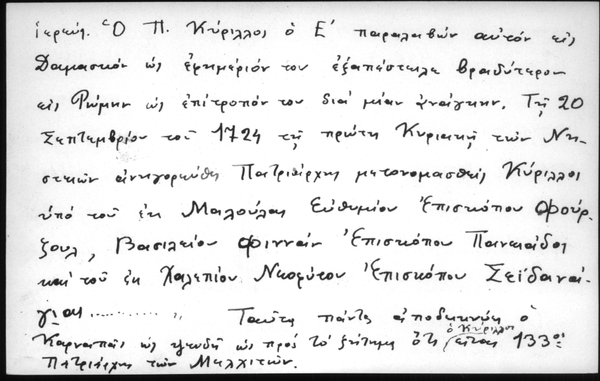 ἱερεύς. Ὁ Π. Κύριλλος ὁ Ε΄ παραλαβών αὐτόν εἰς
Δαμασκόν ὡς ἐφημέριόν του ἐξαπέστειλε βραδύτερον
εἰς Ρώμην ὡς ἐπίτροπόν του διά μίαν ἀνάγκην. Τῇ 20
Σεπτεμβρίου τοῦ 1724 τῇ πρώτῃ Κυριακῇ τῶν Νη-
στειῶν ἀνηγορεύθη Πατριάρχης μετονομασθείς Κύριλλος
ὑπό τοῦ ἐκ Μαλούλας Εὐθυμίου Ἐπισκόπου Φούρ-
ζουλ, Βασιλείου Φιννάν Ἐπισκόπου Πανειάδος
καί τοῦ ἐκ Χαλεπίου Νεοφύτου Ἐπισκόπου Σεϊδανά-
γιας ............ „ Ταῦτα πάντα ἀποδεικνύει ὁ
Καρναπᾶς ὡς ψευδῆ ὡς πρός τό ζήτημα ὅτι ὁ Κύριλλος εἶναι 133ος
Πατριάρχης τῶν Μελχιτῶν.